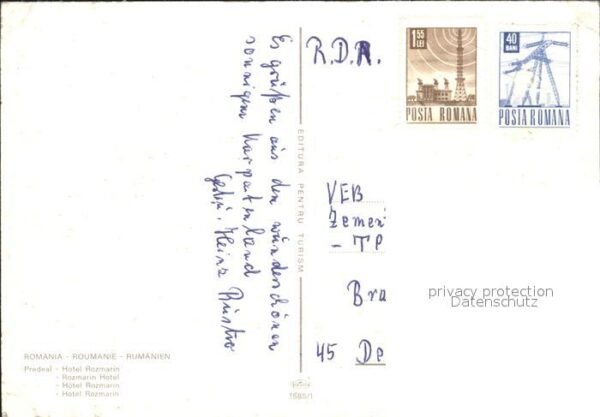 Es grüßen aus dem wunderschönen
sonnigen Karpatenland
Heinz
EDITURA PENTRU TURISM
R.D.R.
1,55
LEI
POSTA ROMANA
40
BANI
POSTA ROMANA
VEB
Zemen
- TP
Bra
45 De
privacy protection
Datenschutz
ROMANIA - ROUMANIE - RUMÄNIEN
Predeal - Hotel Rozmarin
- Rozmarin Hotel
- Hôtel Rozmarin
- Hotel Rozmarin
1585/1